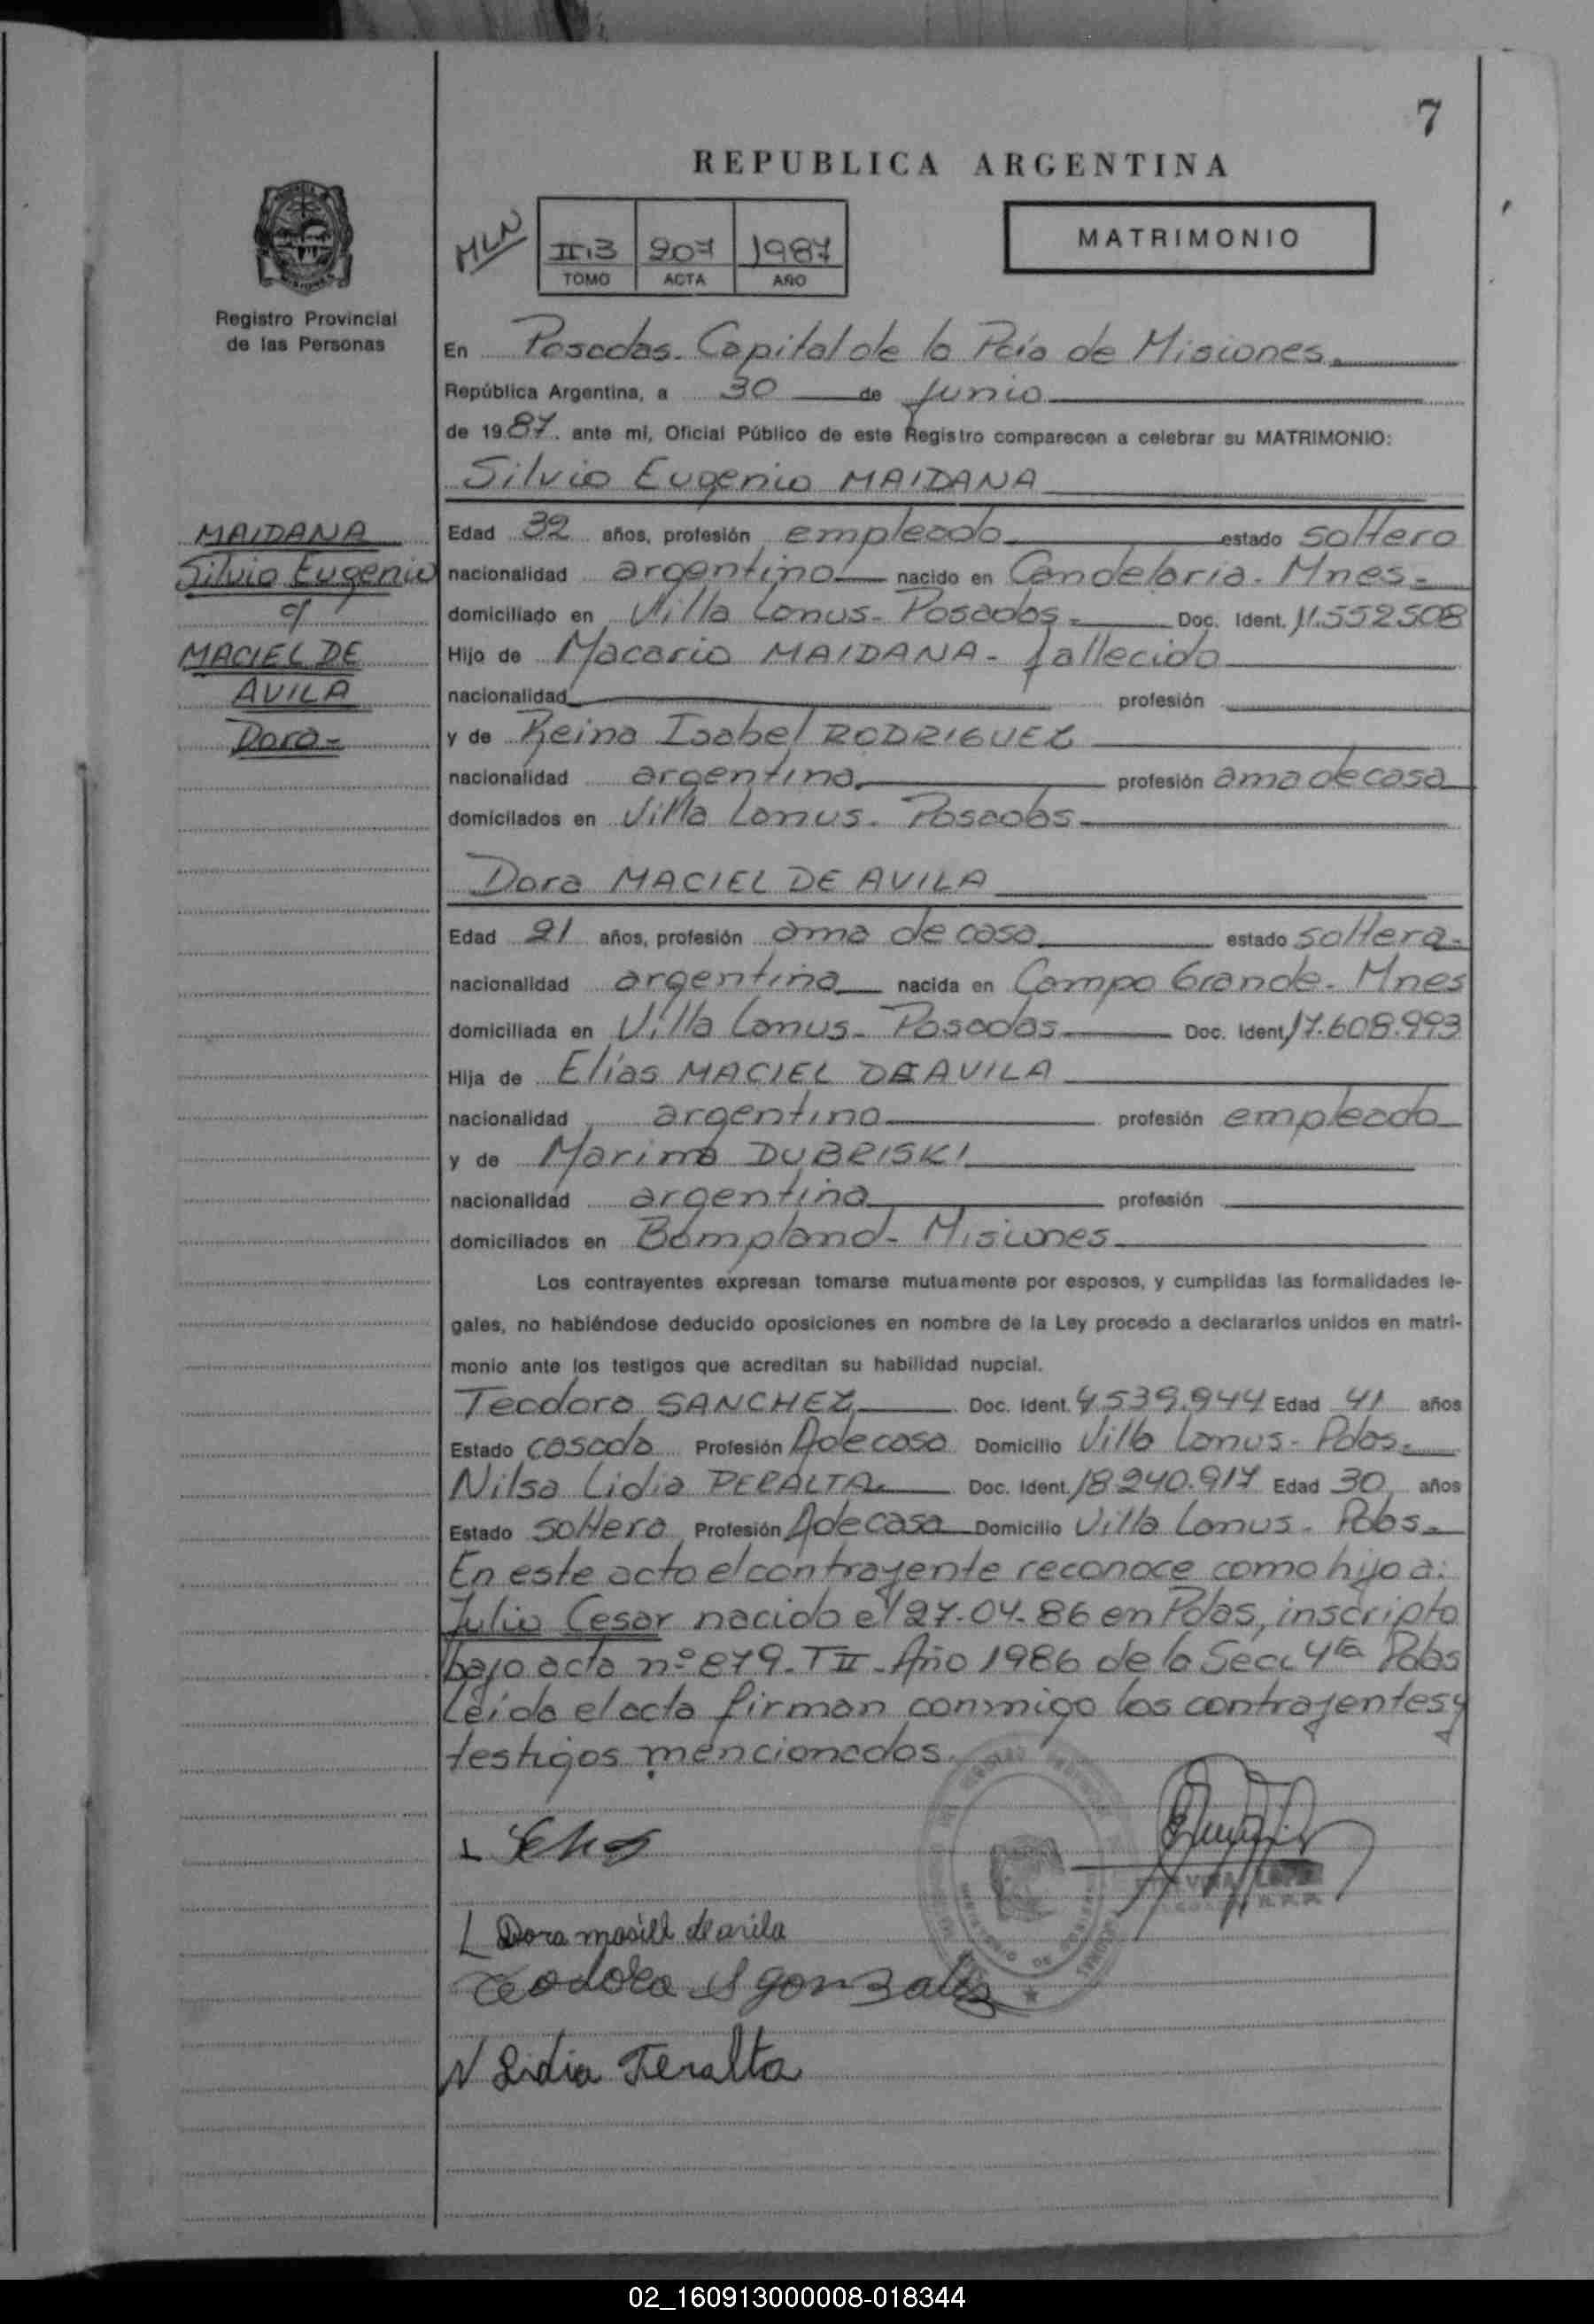 7
REPUBLICA ARGENTINA
MLN
II:3 207 1987
TOMO ACTA AÑO
MATRIMONIO
Registro Provincial
de las Personas
En Posadas. Capital de la Pcia de Misiones.
República Argentina, a 30 de Junio
de 1987. ante mi, Oficial Público de este Registro comparecen a celebrar su MATRIMONIO:
Silvio Eugenio MAIDANA
MAIDANA
Silvio Eugenio
c/
MACIEL DE
AVILA
Dora-
Edad 32 años, profesión empleado estado soltero
nacionalidad argentino nacido en Candelaria. Mnes-
domiciliado en Villa Lanus- Posadas- Doc. Ident. 11.552508
Hijo de Macario MAIDANA- fallecido
nacionalidad profesión
y de Reina Isabel RODRIGUEZ
nacionalidad argentina profesión ama de casa
domiciliados en Villa Lanus. Posadas-
Dora MACIEL DE AVILA
Edad 21 años, profesión ama de casa estado soltera-
nacionalidad argentina nacida en Campo Grande. Mnes
domiciliada en Villa Lanus- Posadas Doc. Ident. 17.608.993
Hija de Elías MACIEL DE AVILA
nacionalidad argentino profesión empleado
y de Marima DUBRISKI
nacionalidad argentina profesión
domiciliados en Bompland- Misiones
Los contrayentes expresan tomarse mutuamente por esposos, y cumplidas las formalidades le-
gales, no habiéndose deducido oposiciones en nombre de la Ley procedo a declararlos unidos en matri-
monio ante los testigos que acreditan su habilidad nupcial.
Teodora SANCHEZ Doc. Ident. 4.539.944 Edad 41 años
Estado casada Profesión A de casa Domicilio Villa Lanus- Pdas.
Nilsa Lidia PERALTA Doc. Ident. 18.240.917 Edad 30 años
Estado soltera Profesión A de casa Domicilio Villa Lanus. Pdas-
En este acto el contrayente reconoce como hijo a:
Julio Cesar nacido el 27-04-86 en Pdas, inscripto
bajo acta nº 879. T II- Año 1986 de la Secc 4ta Pdas
Leida el acta firman conmigo los contrayentes y
testigos mencionados.
Dora masiel de avila
teodora S gonzalez
N Lidia Peralta
02_160913000008-018344